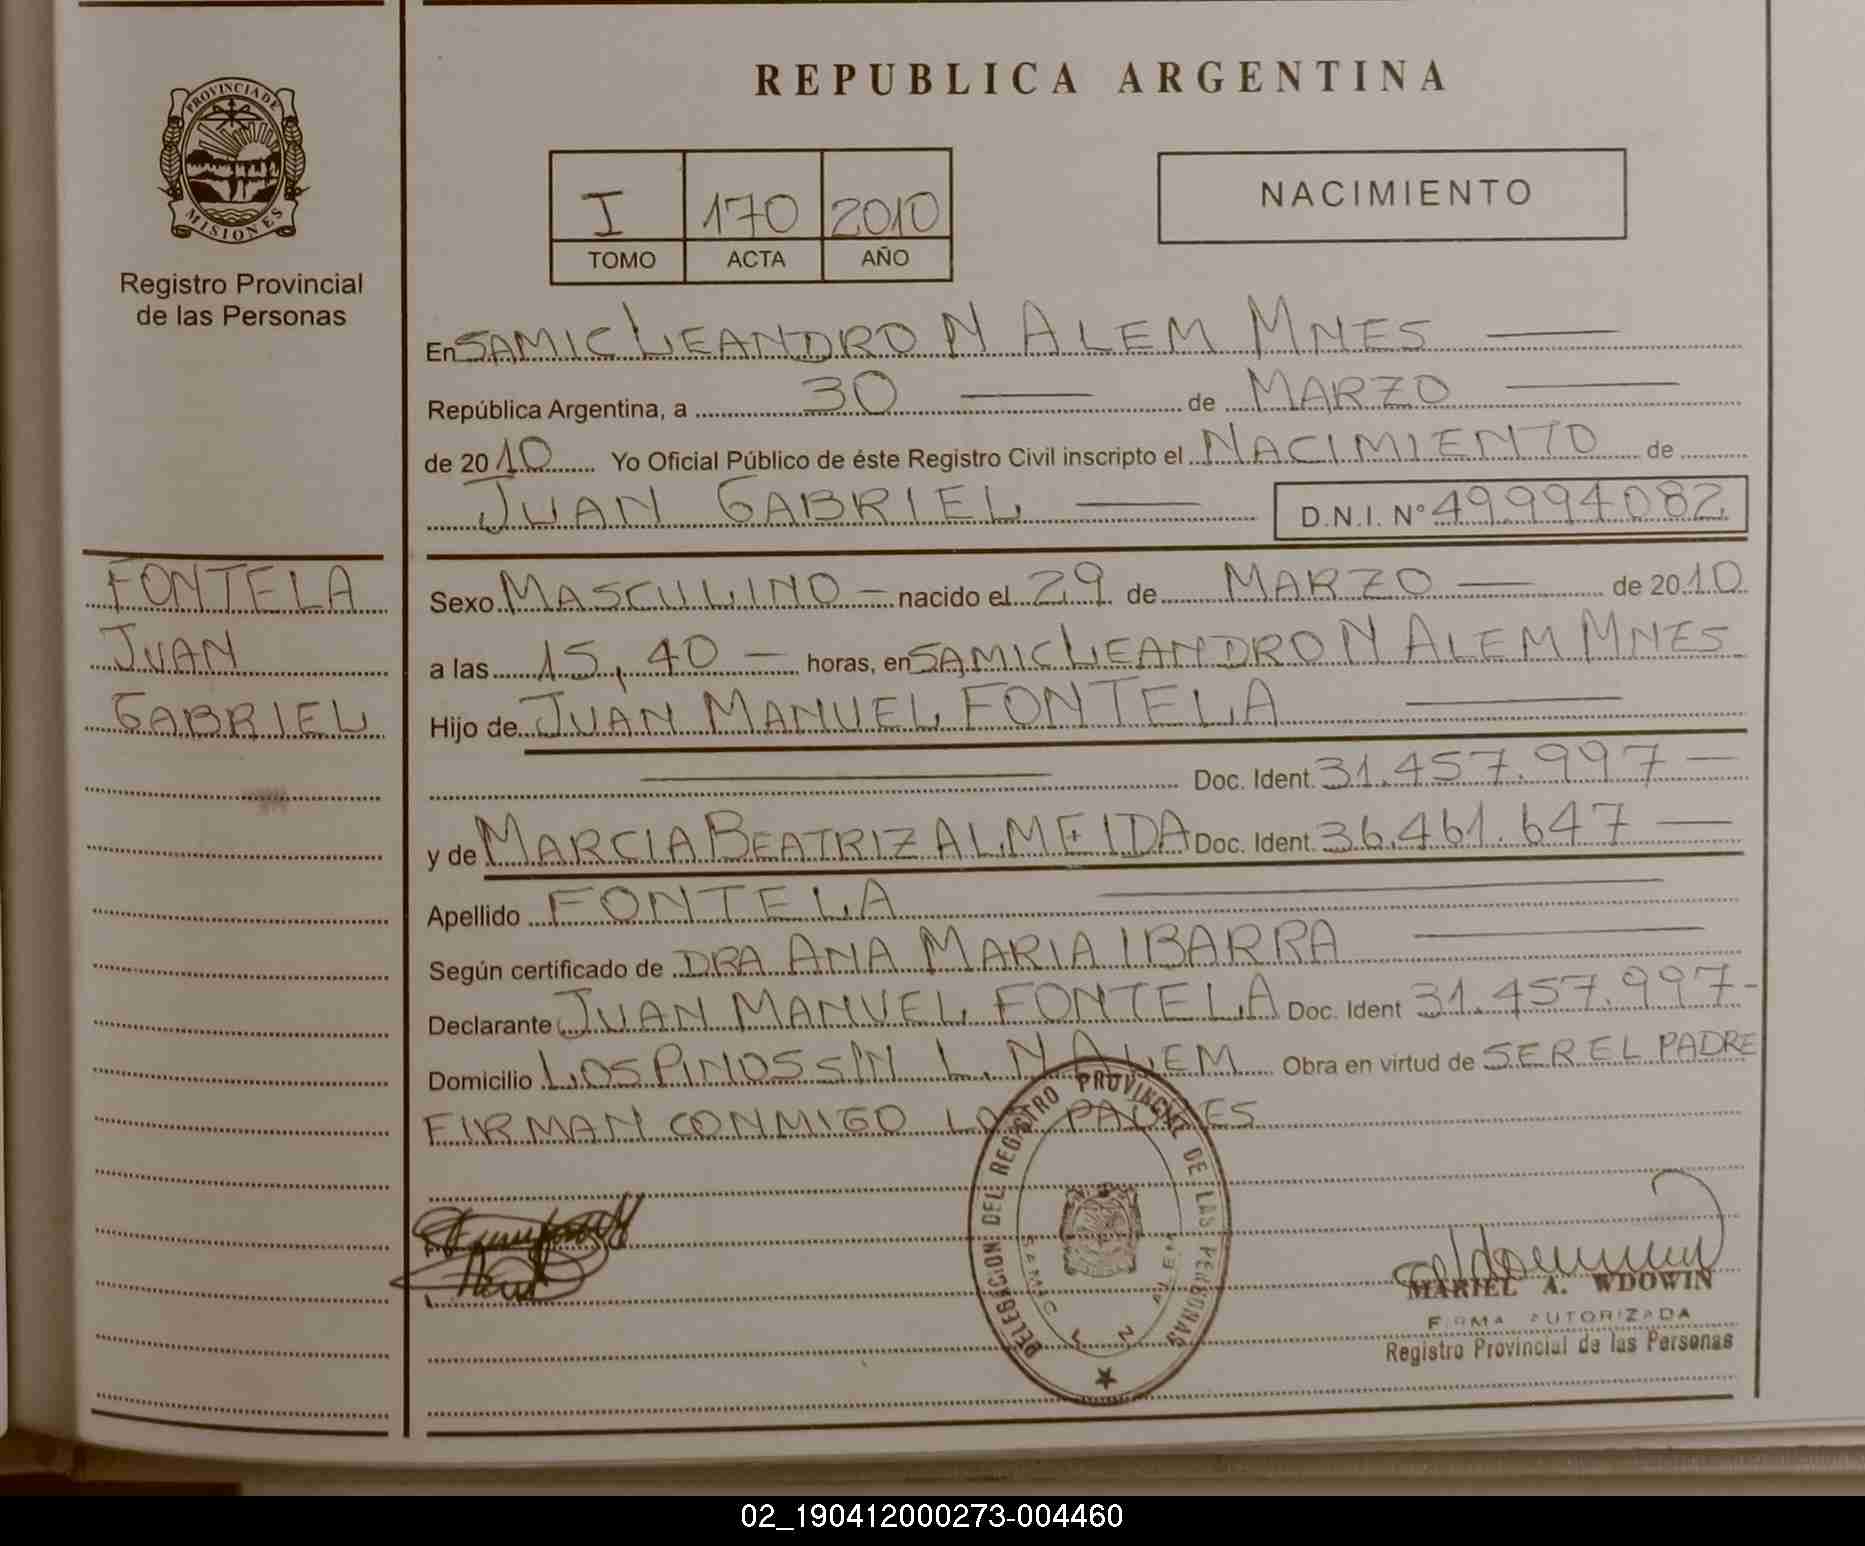 REPUBLICA ARGENTINA
PROVINCIA DE
MISIONES
Registro Provincial
de las Personas
I 170 2010
TOMO ACTA AÑO
NACIMIENTO
En SAMIC LEANDRO N ALEM MNES
República Argentina, a 30 de MARZO
de 2010 Yo Oficial Público de éste Registro Civil inscripto el NACIMIENTO de
JUAN GABRIEL D.N.I. N° 49.994.082
FONTELA
JUAN
GABRIEL
Sexo MASCULINO nacido el 29 de MARZO de 2010
a las 15,40 horas, en SAMIC LEANDRO N ALEM MNES
Hijo de JUAN MANUEL FONTELA
Doc. Ident. 31.457.997
y de MARCIA BEATRIZ ALMEIDA Doc. Ident. 36.461.647
Apellido FONTELA
Según certificado de DRA ANA MARIA IBARRA
Declarante JUAN MANUEL FONTELA Doc. Ident 31.457.997
Domicilio LOS PINOS S/N L. N ALEM Obra en virtud de SER EL PADRE
FIRMAN CONMIGO LOS PADRES
DELEGACION DEL REGISTRO PROVINCIAL DE LAS PERSONAS
SAMIC L N ALEM
MARIEL A. WDOWIN
FIRMA AUTORIZADA
Registro Provincial de las Personas
02_190412000273-004460